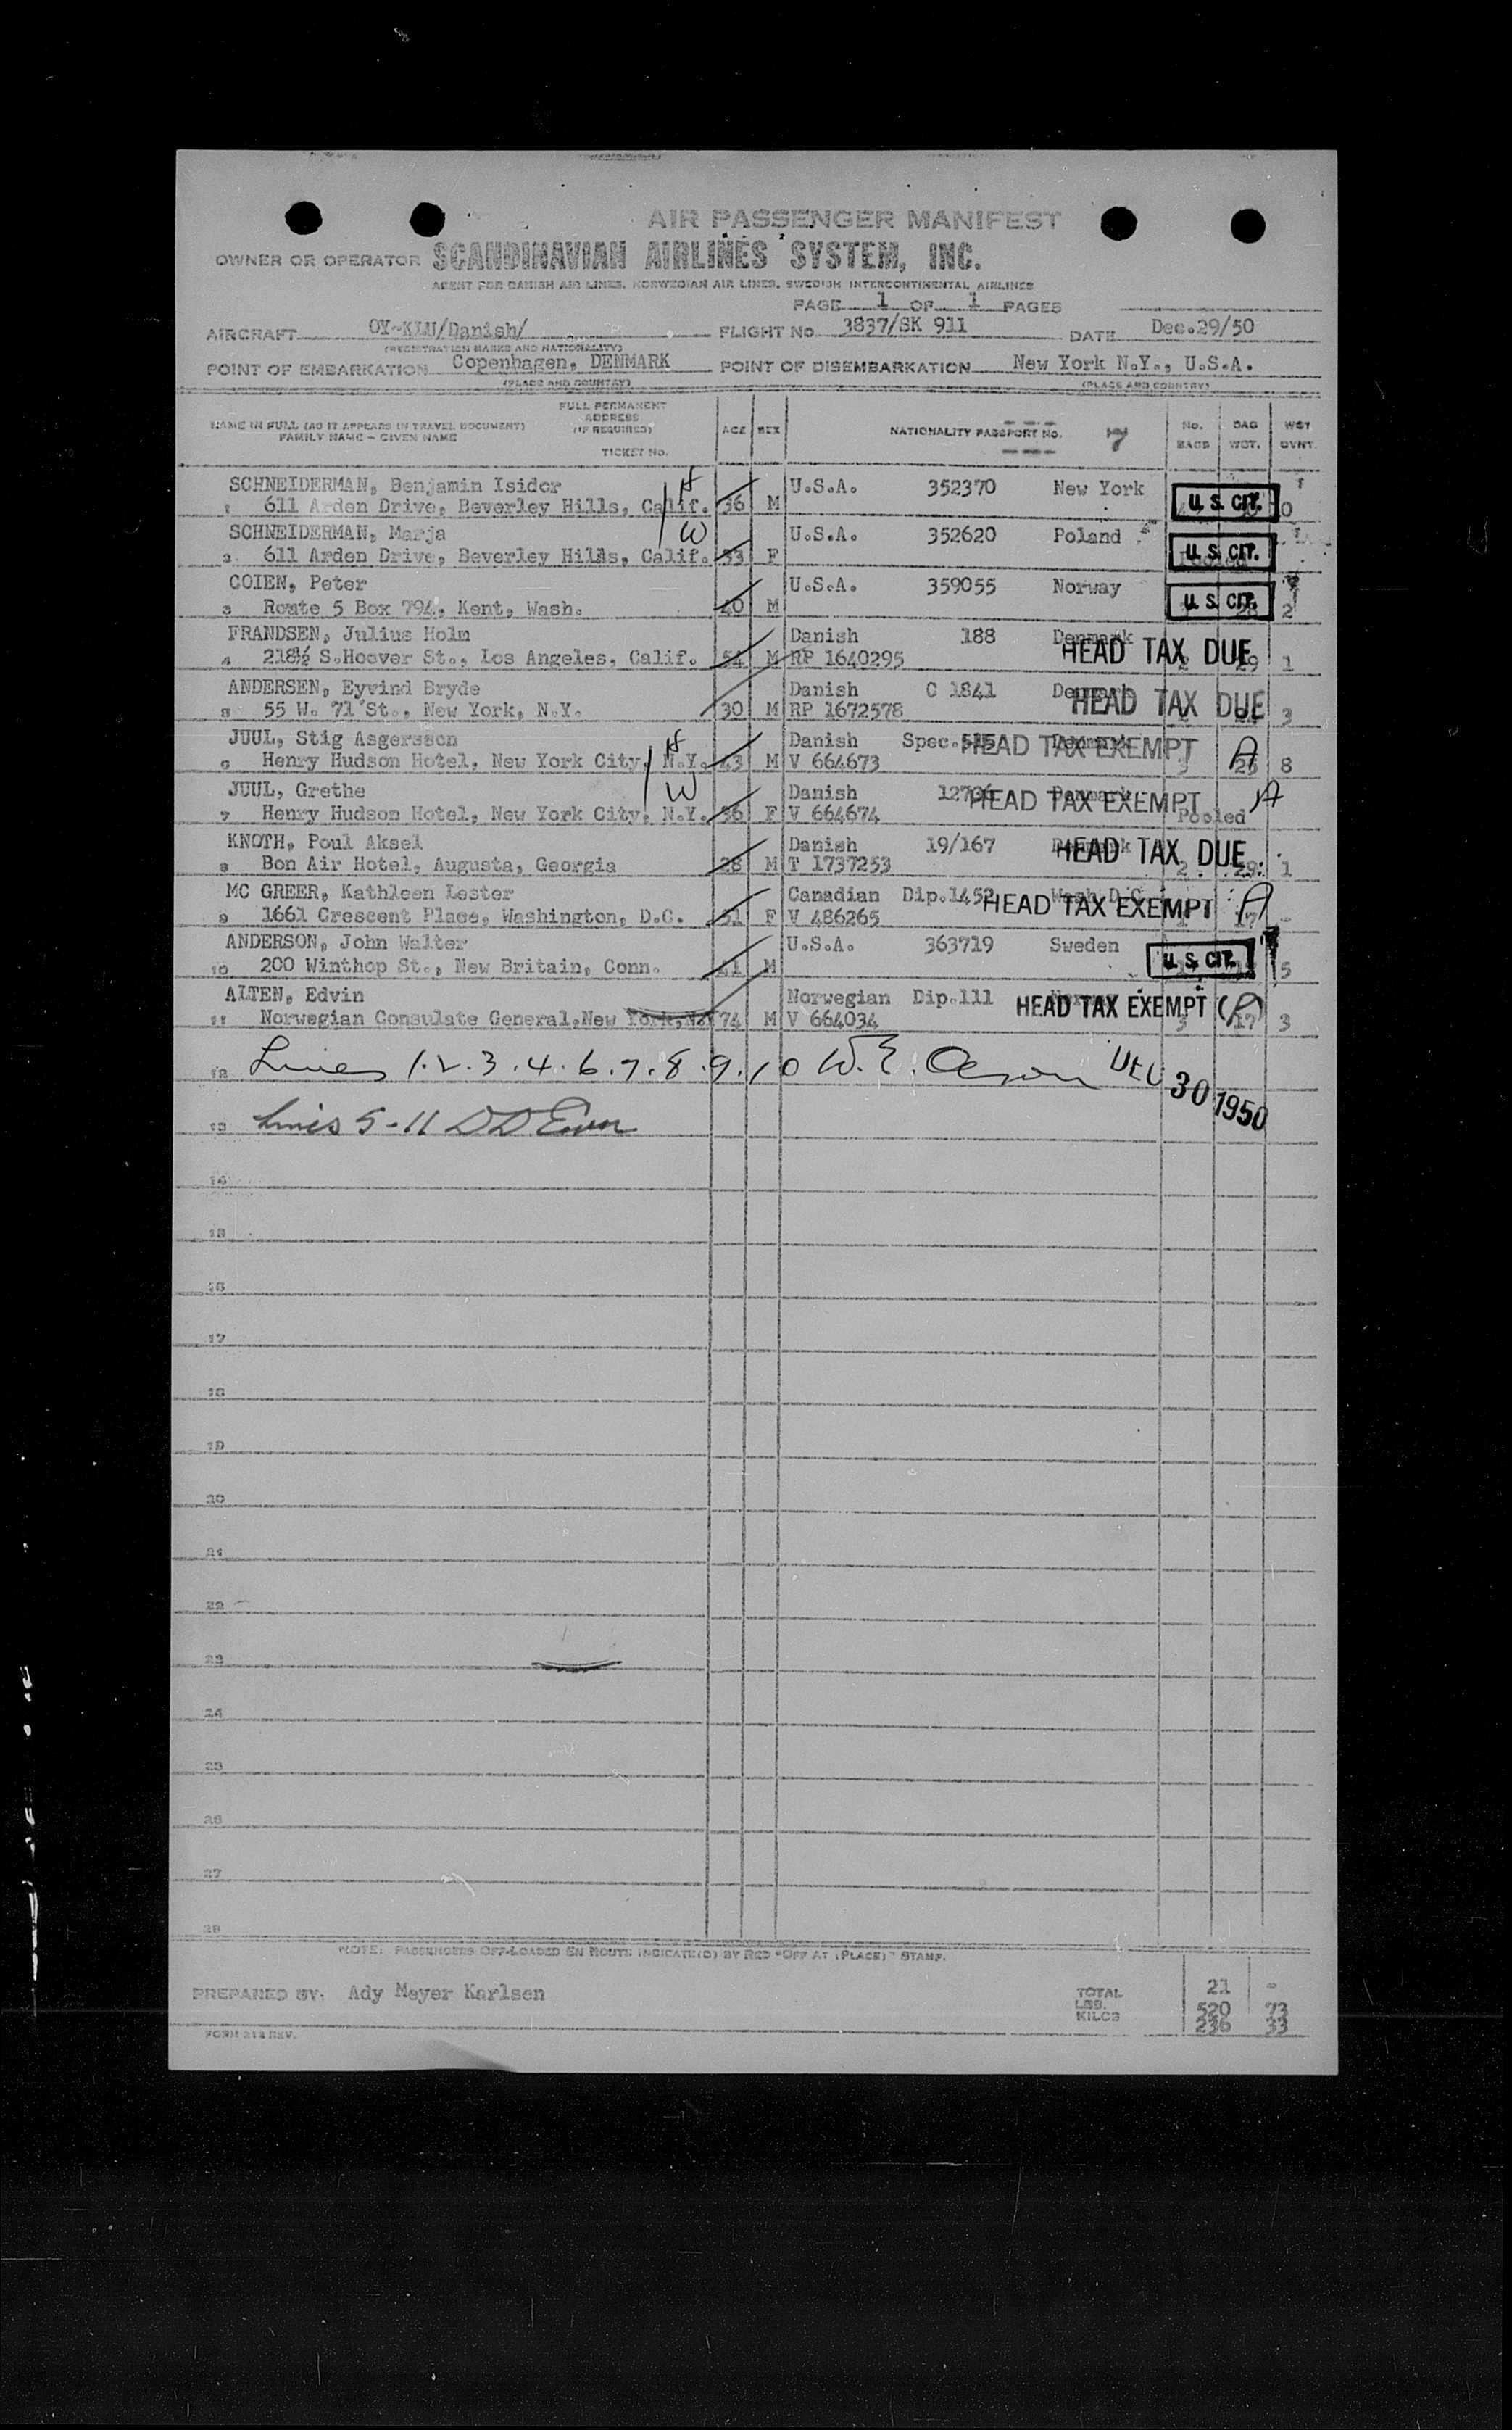 AIR PASSENGER MANIFEST
OWNER OR OPERATOR SCANDINAVIAN AIRLINES SYSTEM, INC.
AGENT FOR DANISH AIR LINES, NORWEGIAN AIR LINES, SWEDISH INTERCONTINENTAL AIRLINES
PAGE 1 OF 1 PAGES
AIRCRAFT OY-KLU/Danish/ FLIGHT No 3837/SK 911 DATE Dec.29/50
(REGISTRATION MARKS AND NATIONALITY)
POINT OF EMBARKATION Copenhagen, DENMARK POINT OF DISEMBARKATION New York N.Y., U.S.A.
(PLACE AND COUNTRY) (PLACE AND COUNTRY)
NAME IN FULL (AS IT APPEARS IN TRAVEL DOCUMENT) FAMILY NAME - GIVEN NAME
FULL PERMANENT ADDRESS (IF REQUIRED) TICKET No.
AGE SEX NATIONALITY PASSPORT No. 7 No. BAGS BAG WGT. WGT OVNT.
SCHNEIDERMAN, Benjamin Isidor H U.S.A. 352370 New York U.S. CIT.
1 611 Arden Drive, Beverley Hills, Calif. 36 M 0
SCHNEIDERMAN, Marja W U.S.A. 352620 Poland U.S. CIT.
2 611 Arden Drive, Beverley Hills, Calif. 33 F
COIEN, Peter U.S.A. 359055 Norway U.S. CIT.
3 Route 5 Box 794, Kent, Wash. 40 M 2
FRANDSEN, Julius Holm Danish 188 Denmark HEAD TAX DUE
4 218½ S.Hoover St., Los Angeles, Calif. 54 M RP 1640295 1
ANDERSEN, Eyvind Bryde Danish C 1841 Denmark HEAD TAX DUE
5 55 W. 71 St., New York, N.Y. 30 M RP 1672578 3
JUUL, Stig Asgersson H Danish Spec. HEAD TAX EXEMPT A
6 Henry Hudson Hotel, New York City, N.Y. 43 M V 664673 3 25 8
JUUL, Grethe W Danish HEAD TAX EXEMPT A
7 Henry Hudson Hotel, New York City, N.Y. 36 F V 664674 Pooled
KNOTH, Poul Aksel Danish 19/167 HEAD TAX DUE
8 Bon Air Hotel, Augusta, Georgia 28 M T 1737253 2 29 1
MC GREER, Kathleen Lester Canadian Dip.1452 Wash.D.C. HEAD TAX EXEMPT A
9 1661 Crescent Place, Washington, D.C. 51 F V 486265 1 17 -
ANDERSON, John Walter U.S.A. 363719 Sweden U.S. CIT.
10 200 Winthop St., New Britain, Conn. 41 M 5
ALTEN, Edvin Norwegian Dip.111 Norway HEAD TAX EXEMPT
11 Norwegian Consulate General,New York,NY 74 M V 664034 3 17 3
12 Lines 1.2.3.4.6.7.8.9.10 W.E. DEC 30 1950
13 Lines 5-11 D D
14
15
16
17
18
19
20
21
22
23
24
25
26
27
28
NOTE: PASSENGERS OFF-LOADED EN ROUTE INDICATE(D) BY RED "OFF AT (PLACE)" STAMP.
PREPARED BY: Ady Meyer Karlsen TOTAL 21 -
LBS. 520 73
KILOS 236 33
FORM 212 REV.